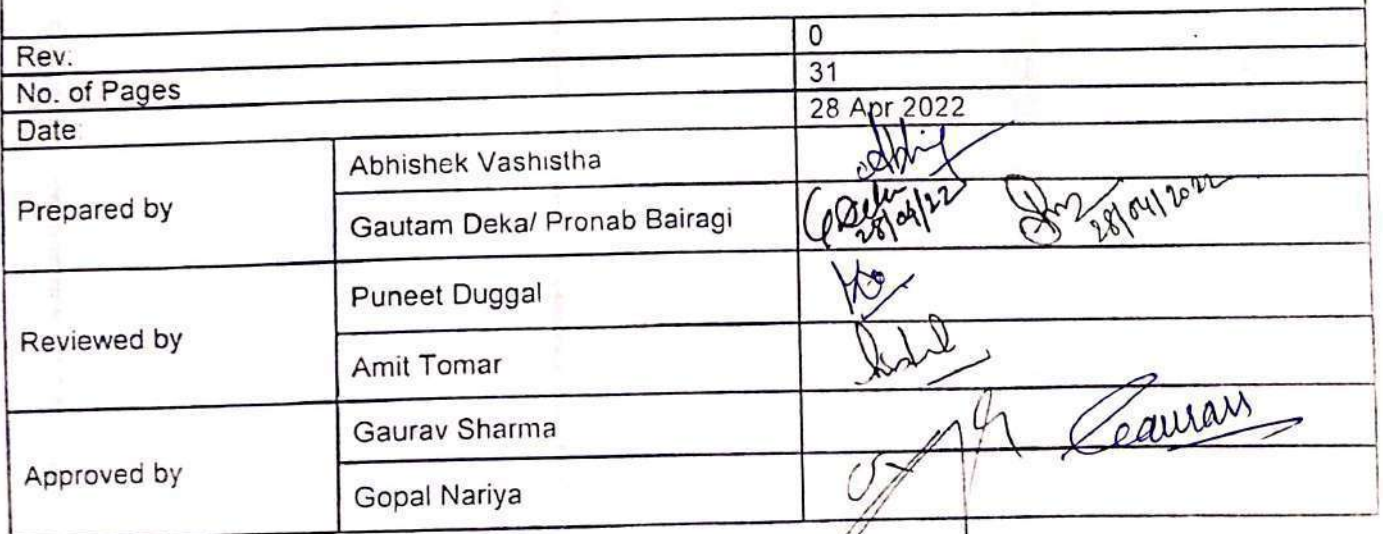 Rev. 0
No. of Pages 31
Date: 28 Apr 2022
Prepared by
Abhishek Vashistha
Gautam Deka/ Pronab Bairagi
GDeka
28/04/22
28/04/2022
Reviewed by
Puneet Duggal
Amit Tomar
Approved by
Gaurav Sharma
Gaurav
Gopal Nariya